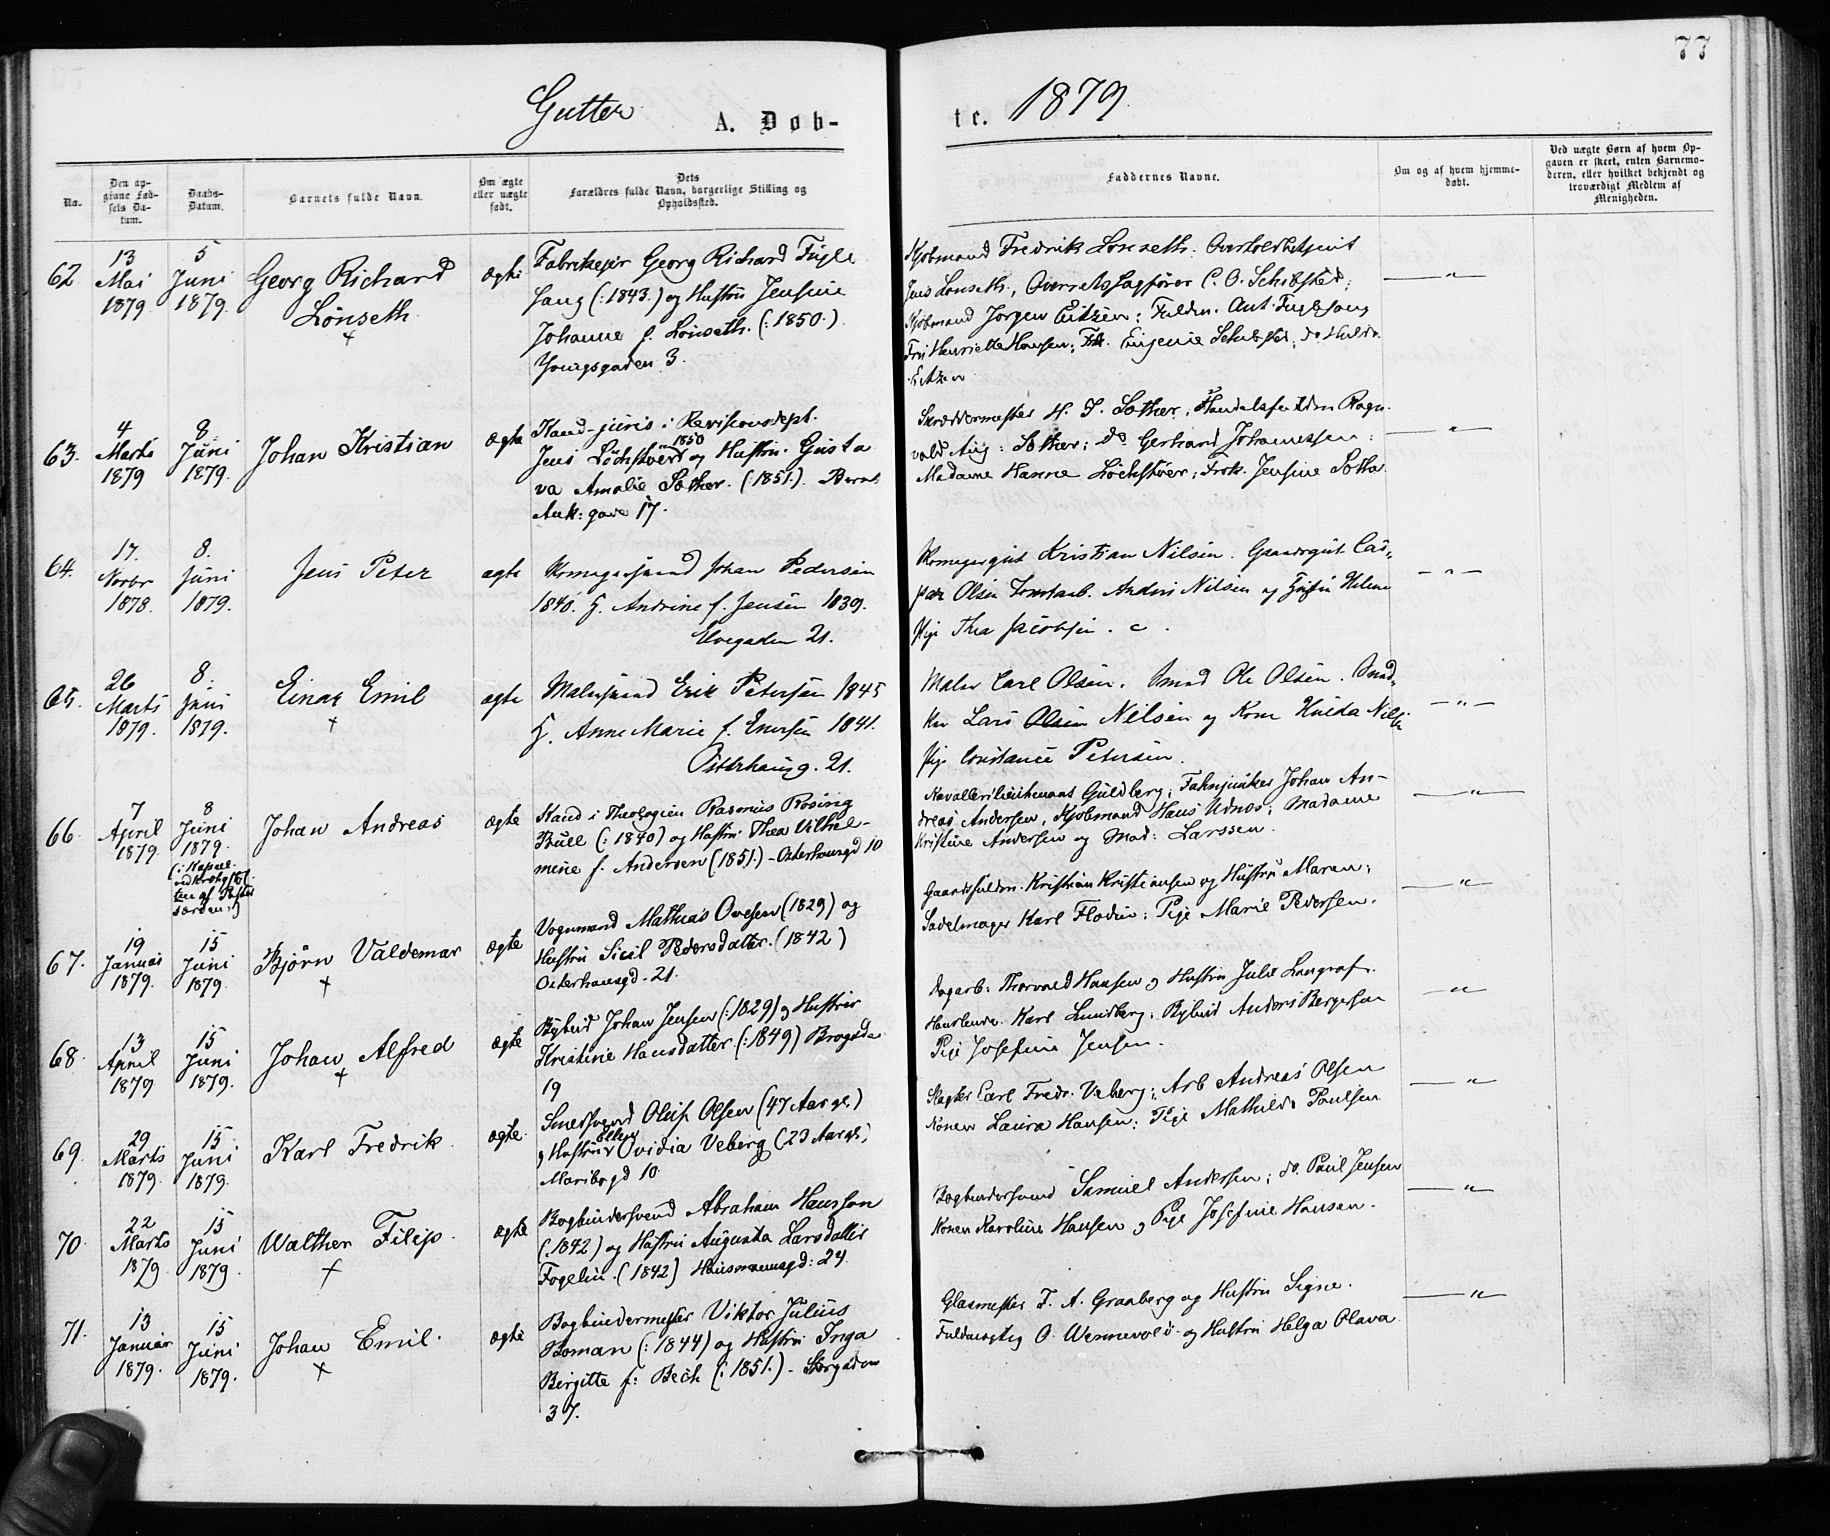 77
Gutter A. Døb-
te. 1879.
No.
Den op-
givne Fød-
sels Da-
tum.
Daabs-
Datum.
Barnets fulde Navn.
Om ægte
eller uægte
født.
Dets
Forældres fulde Navn, borgerlige Stilling og
Opholdssted.
Faddernes Navne.
Om og af hvem hjemme-
døbt.
Ved uægte Børn af hvem Op-
gaven er skeet, enten Barnemo-
deren, eller hvilket bekjendt og
troværdigt Medlem af
Menigheden.
62 13 Mai 1879 5 Juni 1879. Georg Richard Lønseth + ægte
Fabrikeier Georg Richard Fugle
sang (: 1843.) og Hustru Jensine
Johanne f. Lønseth. (: 1850.)
Youngsgaden 3.
Kjøbmand Fredrik Lønseth.
Jens Lønseth, Overretssagfører C. O. Schibsted;
Kjøbmand Jørgen Eitzen; Fuldm. Ant. Fuglesang
Fru Henriette Hansen; Frk. Eugenie Schibsted; do Hulda
Eitzen — " —
63. 4 Marts 1879 8 Juni 1879. Johan Kristian ægte
Kand. juris i Revisionsdept.
Jens Løchstøer 1850 og Hustru Gusta
va Amalie Sother. (: 1851.). Bernt
Ank: gade 17.
Skræddermester H. J. Sother, Handelsfuldm Ragn
vald Aug: Sother; do Gerhard Johannessen;
Madame Hanne Løchstøer; Frøk. Jensine Sother — " —
64. 17. Novbr 1878. 8. Juni 1879. Jens Peter ægte
Johan Pedersen
1840. H. Andrine f. Jensen 1839.
Elvegaden 21.
Kristian Nilsen. Gaardsgut Cas-
par Olsen Anders Nilsen og Helene
Pige Thea Jacobsen. — " —
65. 26 Marts 1879. 8. Juni 1879. Einar Emil + ægte
Malersvend Erik Petersen 1845
H. Anne Marie f. Enersen 1841.
Osterhausg. 21.
Maler Carl Olsen. Smed Ole Olsen. Sned-
ker Lars Olsen Nilsen og Kone Hulda Nilsen
Pige Constance Petersen. — " —
66. 7 April 1879. 8 Juni 1879. Johan Andreas ægte
Kand i Theologien Rasmus Rosing
Bull (: 1840) og Hustru Thea Vilhel-
mine f. Andersen (1851.) - Osterhausgd 10
Kavallerilieutenant Guldberg; Fahnjunker Johan An-
dreas Andersen, Kjøbmand Hans Udnæs; Madame
Kristine Andersen og Mad: Larssen. — " —
67. 19 Januar 1879. 15 Juni 1879. Bjørn Valdemar + ægte
Vognmand Mathias Ovesen (1829) og
Hustru Sicil Pedersdatter. (1842)
Osterhausgd. 21.
Gaardsfuldm. Kristian Kristiansen og Hustru Maren;
Sadelmager Karl Flodin; Pige Marie Pedersen. — " —
68. 13 April 1879 15 Juni 1879. Johan Alfred + ægte
Bybud Johan Jensen (: 1829) og Hustru
Kristine Hansdatter (: 1849) Brogada
19
Dagarb: Thorvald Hansen og Hustru Julie
Karl Lundberg; Bybud Anders Bergersen
Pige Josefine Jensen. — "
69. 29 Marts 1879. 15. Juni 1879. Karl Fredrik ægte.
Smedsvend Oluf Olsen (47 Aar gl.)
og Hustru Ellen Ovidia Veberg (23 Aar gl.)
Maribogd 10.
Slagter Carl Fredr. Veberg; Arb Andreas Olsen
Konen Laura Hansen; Pige Mathilde Paulsen — "
70. 22 Marts 1879 15 Juni 1879. Walther Filip. + ægte
Bogbindersvend Abraham Hansson
(: 1842) og Hustru Augusta Larsdatter
Fogelin. (1842) Hausmannsgd: 24.
Bogbindersvend Samuel Andersen; do. Paul Jensen
Konen Karoline Hansen og Pige Josefine Hansen. — "
71. 13 Januar 1879. 15 Juni 1879. Johan Emil. + ægte
Bogbindermester Viktor Julius
Boman (: 1844) og Hustru Inga
Birgitte f: Bech (: 1851.) - Storgaden
37.
Glasmester F. A. Granberg og Hustru Signe.
O. Wennevold og Hustru Helga Olava — "